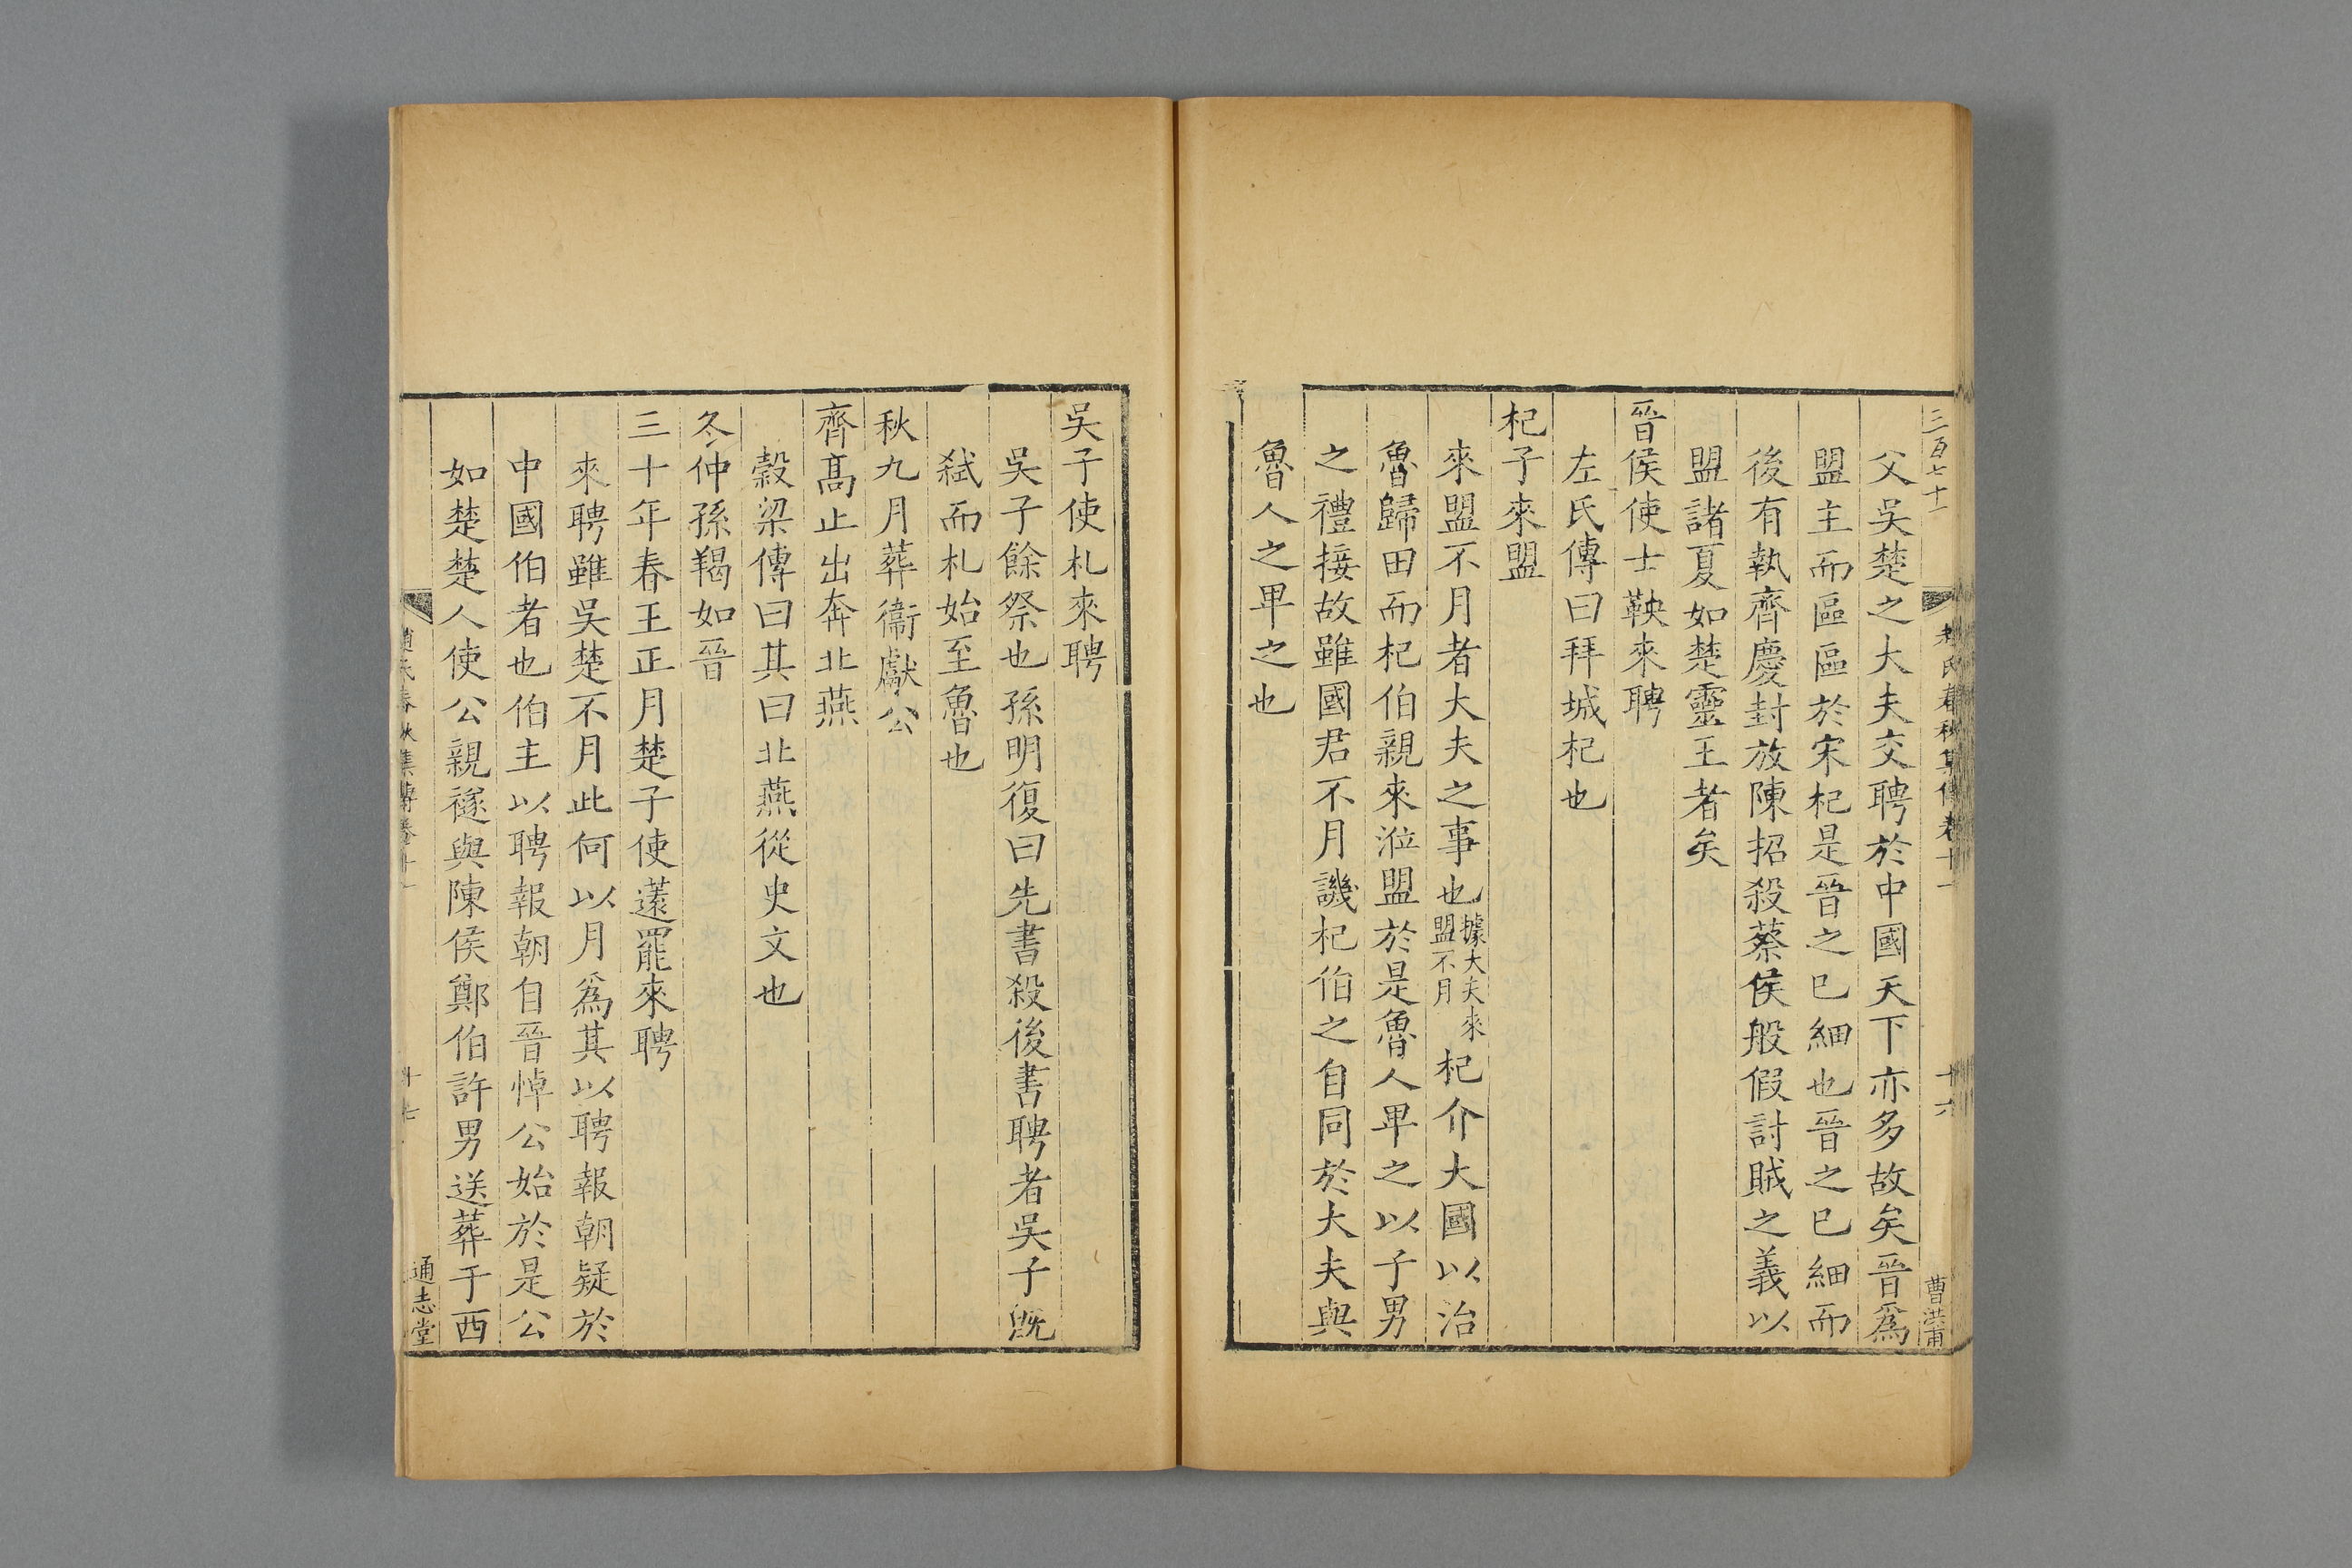 三百七十一
春秋集傳卷十一
十六
曹洪甫
父吳楚之大夫交聘於中國天下亦多故矣晉爲
盟主而區區於宋杞是晉之已細也晉之已細而
後有執齊慶封放陳招殺蔡侯般假討賊之義以
盟諸夏如楚靈王者矣
晉侯使士鞅來聘
左氏傳曰拜城杞也
杞子來盟
來盟不月者大夫之事也據大夫來盟不月杞介大國以治
魯歸田而杞伯親來涖盟於是魯人卑之以子男
之禮接故雖國君不月譏杞伯之自同於大夫與
魯人之卑之也
吳子使札來聘
吳子餘祭也孫明復曰先書殺後書聘者吳子旣
弑而札始至魯也
秋九月葬衞獻公
齊高止出奔北燕
穀梁傳曰其曰北燕從史文也
冬仲孫羯如晉
三十年春王正月楚子使薳罷來聘
來聘雖吳楚不月此何以月爲其以聘報朝疑於
中國伯者也伯主以聘報朝自晉悼公始於是公
如楚楚人使公親襚與陳侯鄭伯許男送葬于西
氏春秋集傳卷十一
十七
通志堂